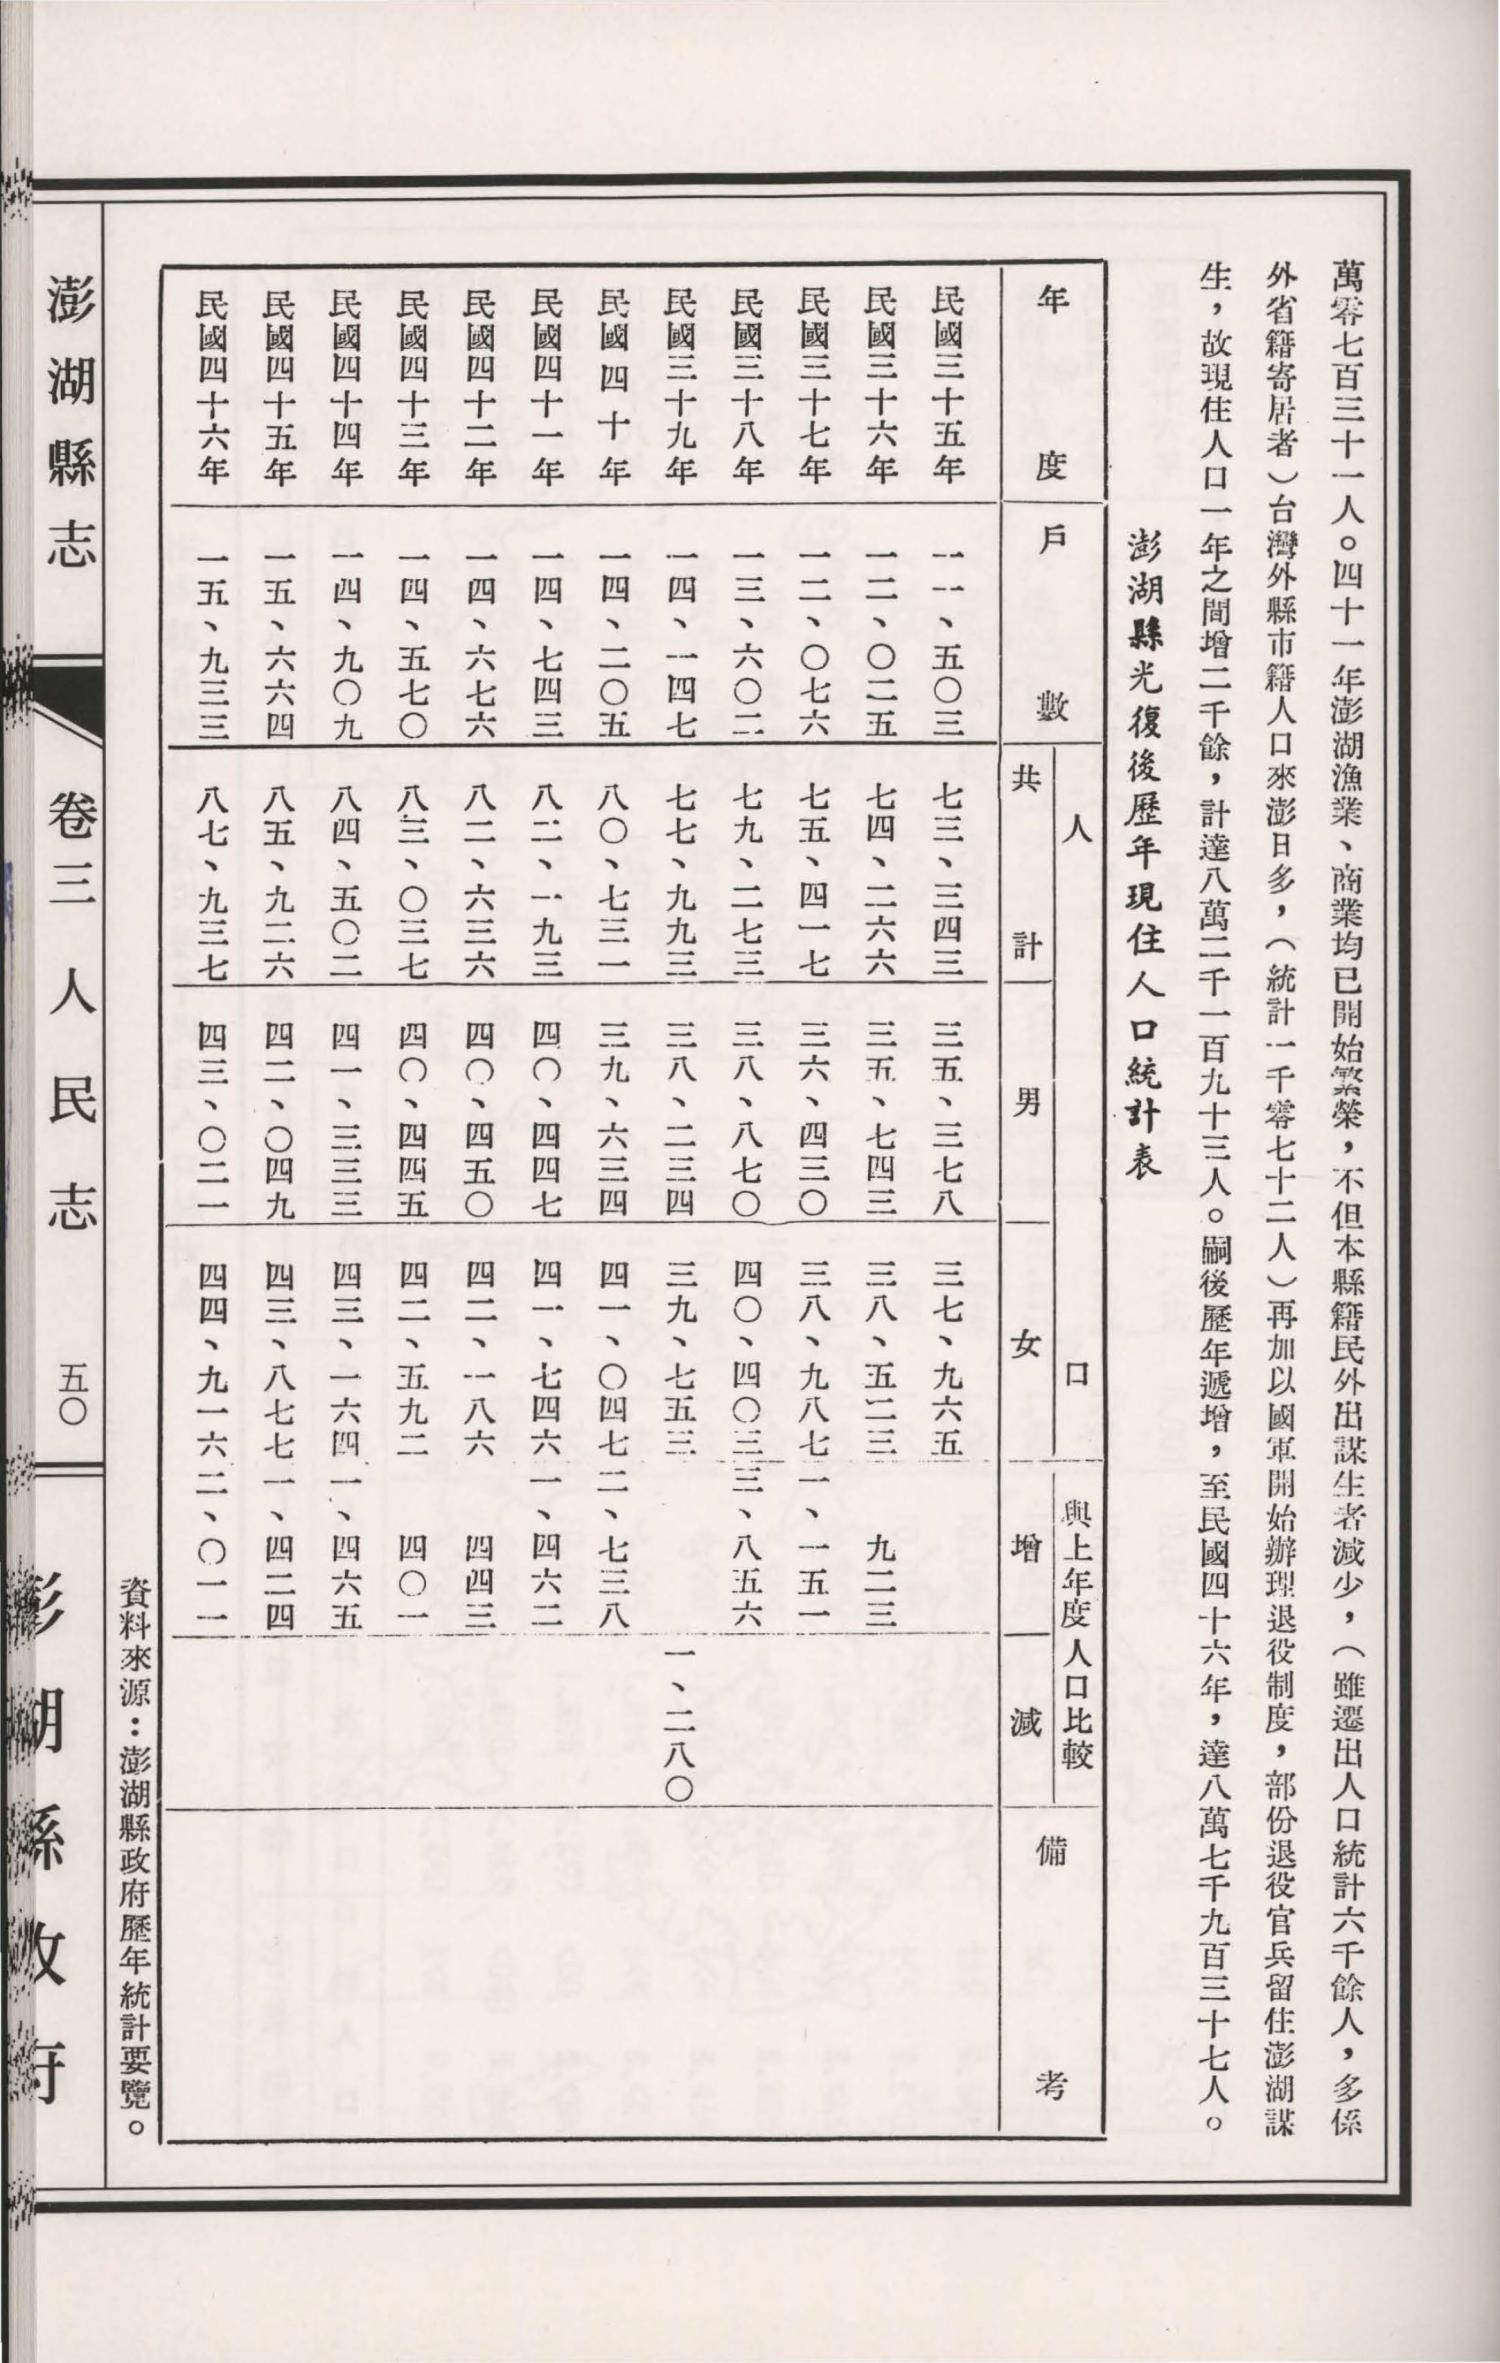 萬零七百三十一人。四十一年澎湖漁業、商業均已開始繁榮，不但本縣籍民外出謀生者減少，（雖遷出人口統計六千餘人，多係
外省籍寄居者）台灣外縣市籍人口來澎日多，（統計一千零七十二人）再加以國軍開始辦理退役制度，部份退役官兵留住澎湖謀
生，故現住人口一年之間增二千餘，計達八萬二千一百九十三人。嗣後歷年遞增，至民國四十六年，達八萬七千九百三十七人。
澎湖縣光復後歷年現住人口統計表
年度 戶數 人口 共計 男 女 與上年度人口比較 增 減 備考
民國三十五年 一一、五〇三 七三、三四三 三五、三七八 三七、九六五
民國三十六年 一二、〇二五 七四、二六六 三五、七四三 三八、五二三 九二三
民國三十七年 一二、〇七六 七五、四一七 三六、四三〇 三八、九八七 一、一五一
民國三十八年 一三、六〇二 七九、二七三 三八、八七〇 四〇、四〇三 三、八五六
民國三十九年 一四、一四七 七七、九九三 三八、二三四 三九、七五三 一、二八〇
民國四十年 一四、二〇五 八〇、七三一 三九、六三四 四一、〇四七 二、七三八
民國四十一年 一四、七四三 八二、一九三 四〇、四四七 四一、七四六 一、四六二
民國四十二年 一四、六七六 八二、六三六 四〇、四五〇 四二、一八六 四四三
民國四十三年 一四、五七〇 八三、〇三七 四〇、四四五 四二、五九二 四〇一
民國四十四年 一四、九〇九 八四、五〇二 四一、三三三 四三、一六四 一、四六五
民國四十五年 一五、六六四 八五、九二六 四二、〇四九 四三、八七七 一、四二四
民國四十六年 一五、九三三 八七、九三七 四三、〇二一 四四、九一六 二、〇一一
資料來源：澎湖縣政府歷年統計要覽。
澎湖縣志 卷三人民志 五〇 澎湖縣政府